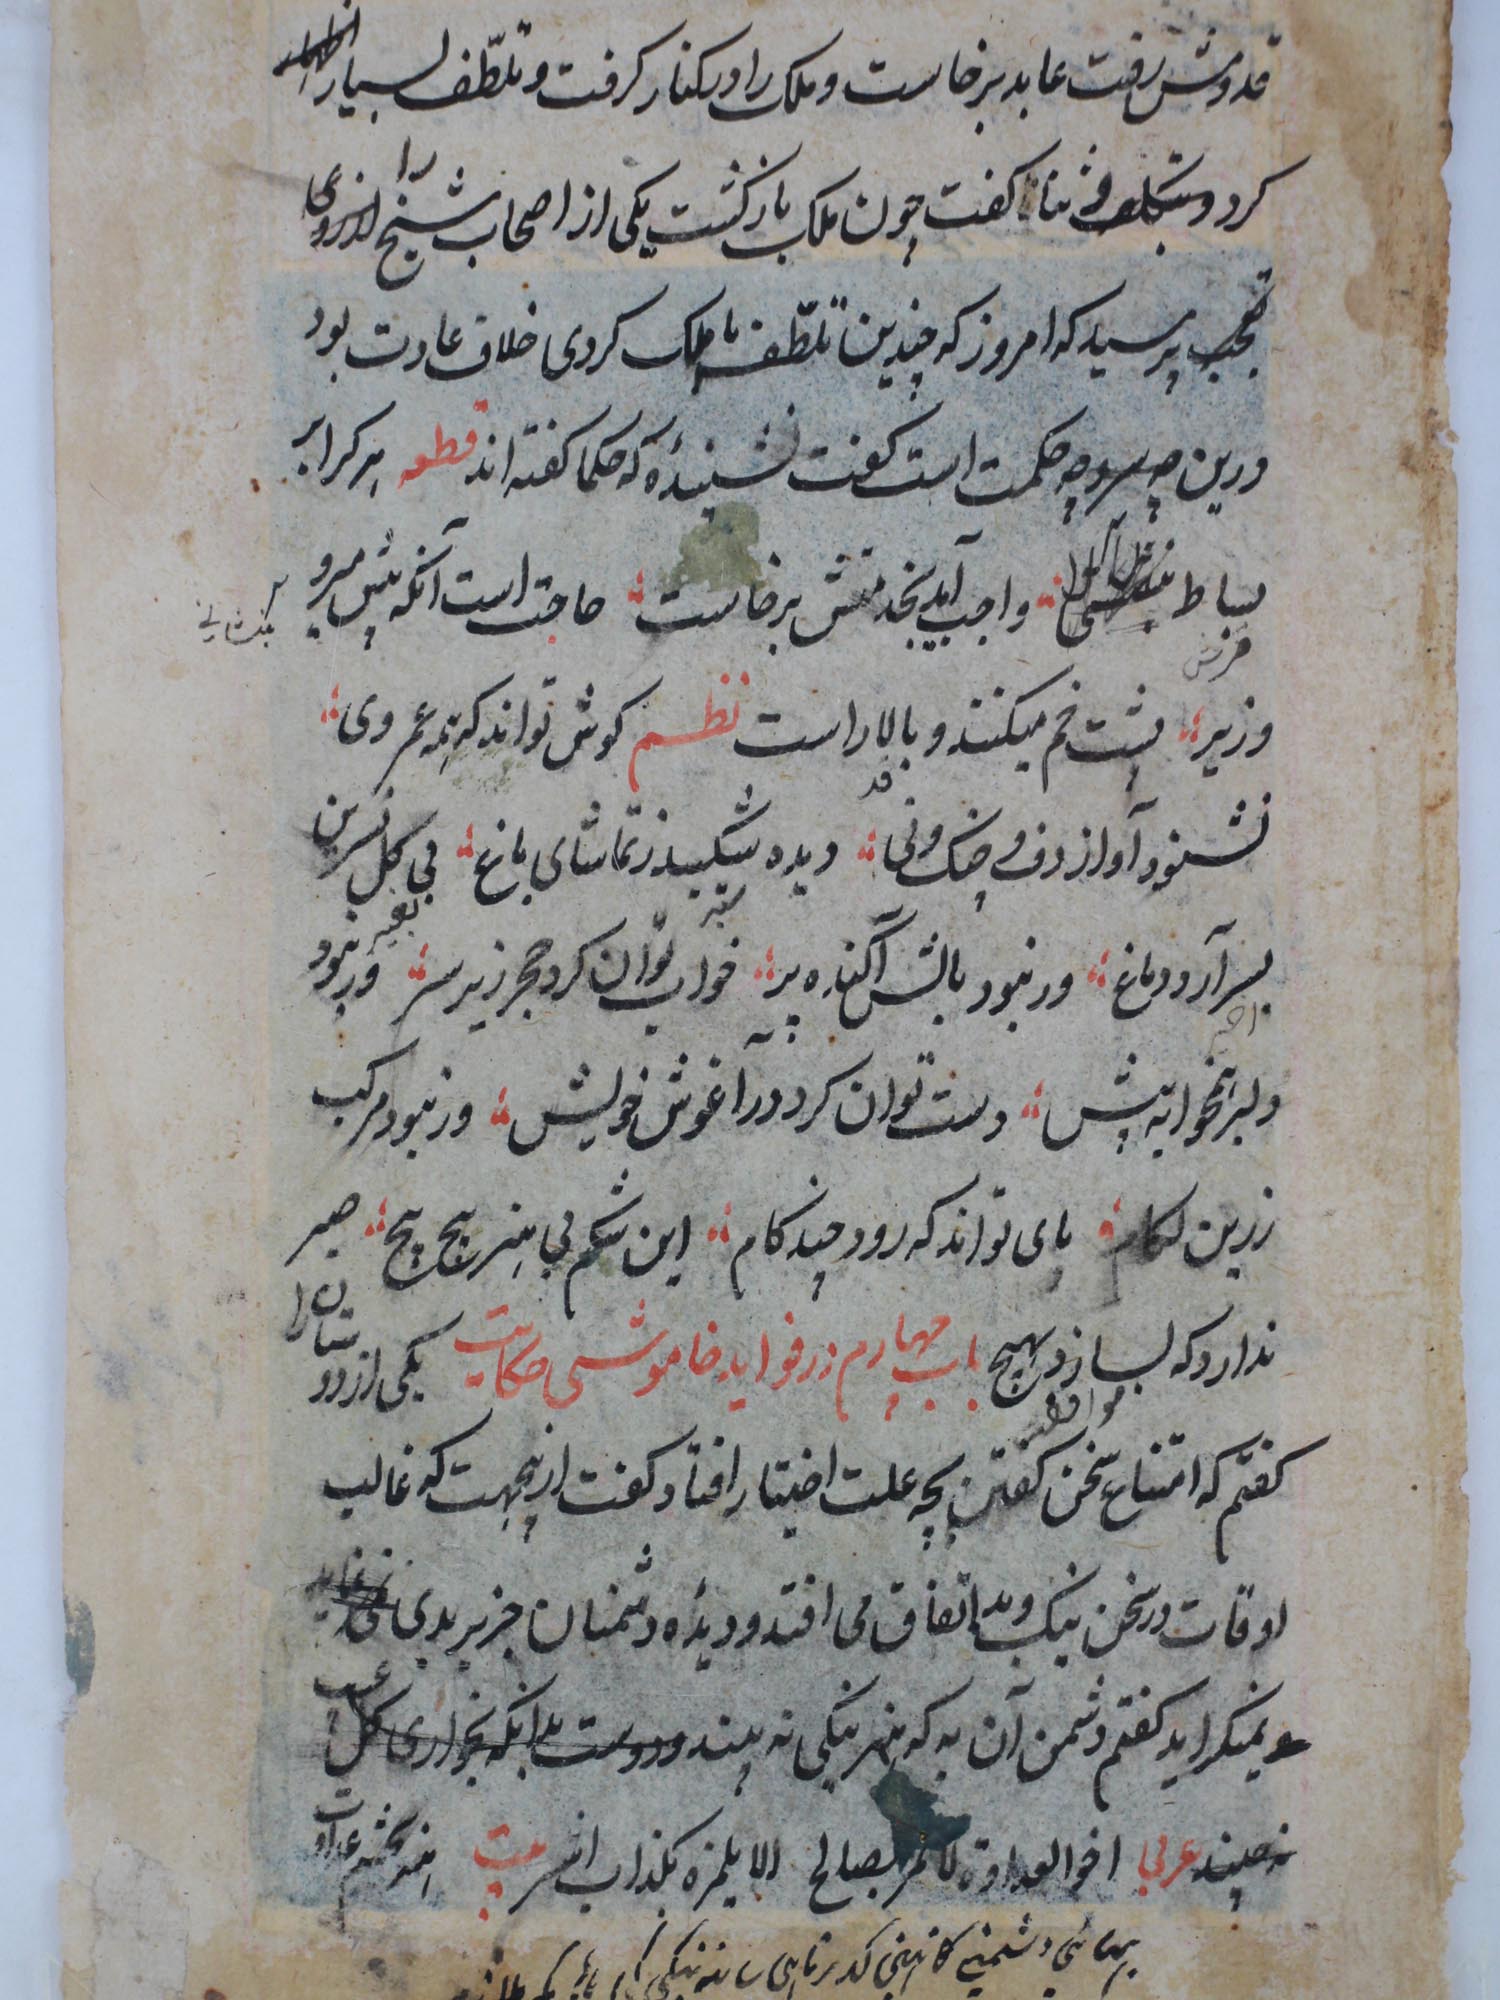 قدومش رفت عابد برخاست و ملک را در کنار گرفت و تلطّف بسیار
کرد و ثنا گفت چون ملک باز گشت یکی از اصحاب شیخ را از روی
تعجب پرسید که امروز که چندین تلطّف با ملک کردی خلاف عادت بود
درین چه حکمت است گفت نشنیدهٔ که حکما گفته اند قطعه هر کرا بر
بساط واجب آید بخدمتش برخاست حاجت است آنکه پیش میر و
فرش
وزیر پشت خم میکنند و بالا راست نظم گوش تواند که همه عمر وی
قد
نشنود آواز دف و چنک و نی دیده شکیبد ز تماشای باغ بی کل نسرین
بسر آرد دماغ ور نبود بالش آکنده پر خواب توان کرد حجر زیر سر ور نبود
دلبر همخوابه پیش دست توان کرد در آغوش خویش ور نبود مرکب
زرین لکام پای تواند که رود چند کام این شکم بی هنر پیچ پیچ صبر
ندارد که بسازد بهیچ باب چهارم در فواید خاموشی حکایت یکی از دوستان را
گفتم که امتناع سخن گفتن بچه علت اختیار افتاد گفت ازینجهت که غالب
اوقات در سخن نیک و بد اتفاق می افتد و دیدهٔ دشمنان جز بر بدی نمی
گفتم دشمن آن به که هنر نیکی نه بیند
عربی اخوالعداوة لا یمر بصالح الا یلمزه بکذاب اشر بیت هنر بچشم عداوت